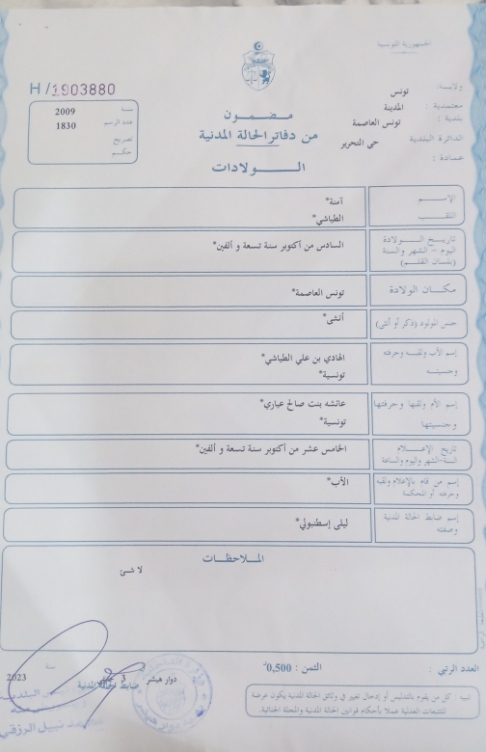 الجمهورية التونسية
H/1903880
ولاية: تونس
معتمدية: المدينة
بلدية: تونس العاصمة
الدائرة البلدية حي التحرير
عمادة:
سنة 2009
عدد الرسم 1830
تصريح
حكم
مضمون
من دفاتر الحالة المدنية
الولادات
الإسم آمنة*
اللقب الطياشي*
تاريخ الولادة السادس من أكتوبر سنة تسعة و ألفين*
اليوم - الشهر والسنة
(بلسان القلم)
مكان الولادة تونس العاصمة*
جنس المولود (ذكر أو أنثى) أنثى*
إسم الأب ولقبه وحرفته الهادي بن علي الطياشي*
وجنسيته تونسية*
إسم الأم ولقبها وحرفتها عائشه بنت صالح عياري*
وجنسيتها تونسية*
تاريخ الإعلام الخامس عشر من أكتوبر سنة تسعة و ألفين*
السنة-الشهر واليوم والساعة
إسم من قام بالإعلام ولقبه الأب*
وحرفته أو المحكمة
إسم ضابط الحالة المدنية ليلى إسطنبولي*
وصفته
الملاحظات
لا شئ
العدد الرتبي :
الثمن : 0,500
دوار هيشر
3
سنة
2023
ضابط الحالة المدنية
نبيل الرزقي
تنبيه كل من يقوم بالتدليس أو إدخال تغيير في وثائق الحالة المدنية يكون عرضة
للتتبعات العدلية عملا بأحكام قوانين الحالة المدنية والمجلة الجنائية.